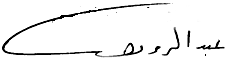 عبد الرؤوف